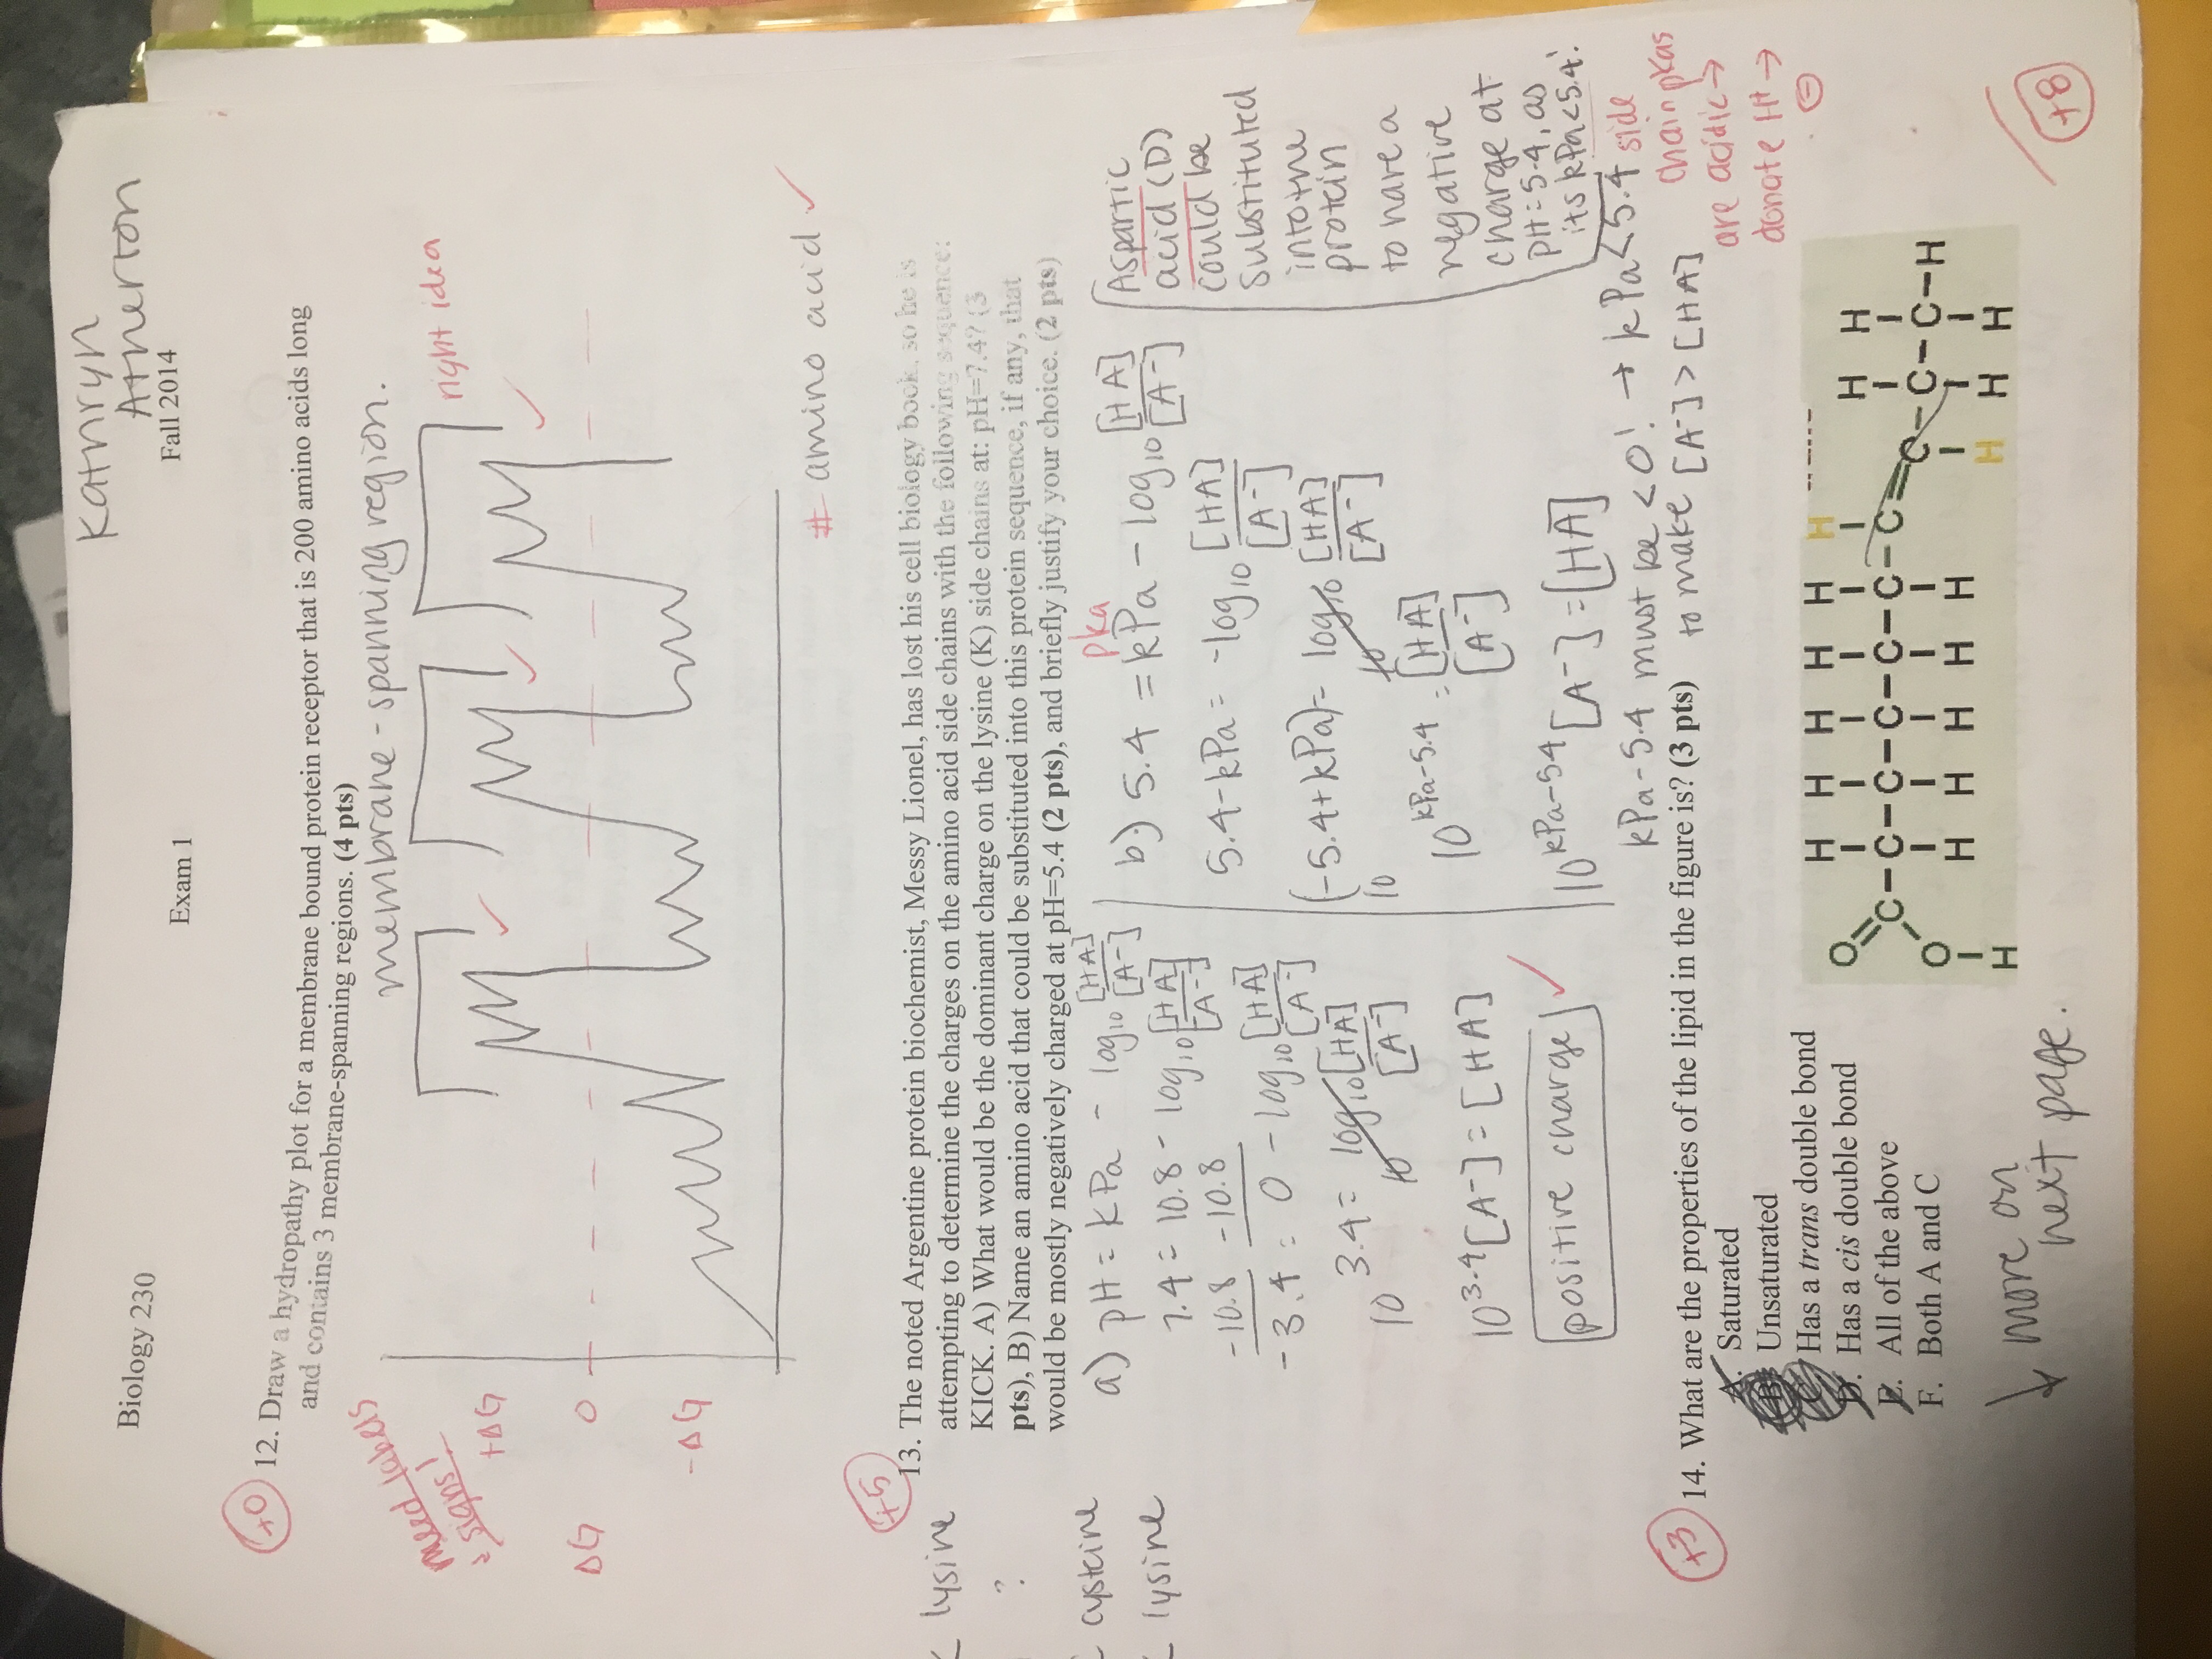 Kathryn
Atherton
Biology 230
Exam 1
Fall 2014
+0
12. Draw a hydropathy plot for a membrane bound protein receptor that is 200 amino acids long
and contains 3 membrane-spanning regions. (4 pts)
need labels
& signs!
membrane-spanning region.
right idea
+ΔG
ΔG 0
-ΔG
# amino acid
+5
13. The noted Argentine protein biochemist, Messy Lionel, has lost his cell biology book, so he is
attempting to determine the charges on the amino acid side chains with the following sequence:
KICK. A) What would be the dominant charge on the lysine (K) side chains at: pH=7.4? (3
pts), B) Name an amino acid that could be substituted into this protein sequence, if any, that
would be mostly negatively charged at pH=5.4 (2 pts), and briefly justify your choice. (2 pts)
lysine
?
cysteine
lysine
a) pH = kPa - log10 [HA]/[A-]
7.4 = 10.8 - log10 [HA]/[A-]
-10.8 -10.8
-3.4 = 0 - log10 [HA]/[A-]
10^3.4 = 10^log10 [HA]/[A-]
10^3.4 [A-] = [HA]
positive charge
pka
b.) 5.4 = kPa - log10 [HA]/[A-]
5.4-kPa = -log10 [HA]/[A-]
10^(-5.4+kPa) = 10^log10 [HA]/[A-]
10^kPa-5.4 = [HA]/[A-]
10^kPa-5.4 [A-] = [HA]
kPa-5.4 must be <0! → kPa<5.4
to make [A-] > [HA]
Aspartic
acid (D)
could be
substituted
into the
protein
to have a
negative
charge at
pH=5.4, as
its kPa<5.4!
side
chain pkas
are acidic →
donate H+ →
⊖
+3
14. What are the properties of the lipid in the figure is? (3 pts)
A. Saturated
B. Unsaturated
C. Has a trans double bond
D. Has a cis double bond
E. All of the above
F. Both A and C
H H H H H H
O H H
C-C-C-C-C-C-C=C-C-C-H
O
H H H H H
H H H H
↓ more on
next page.
+8